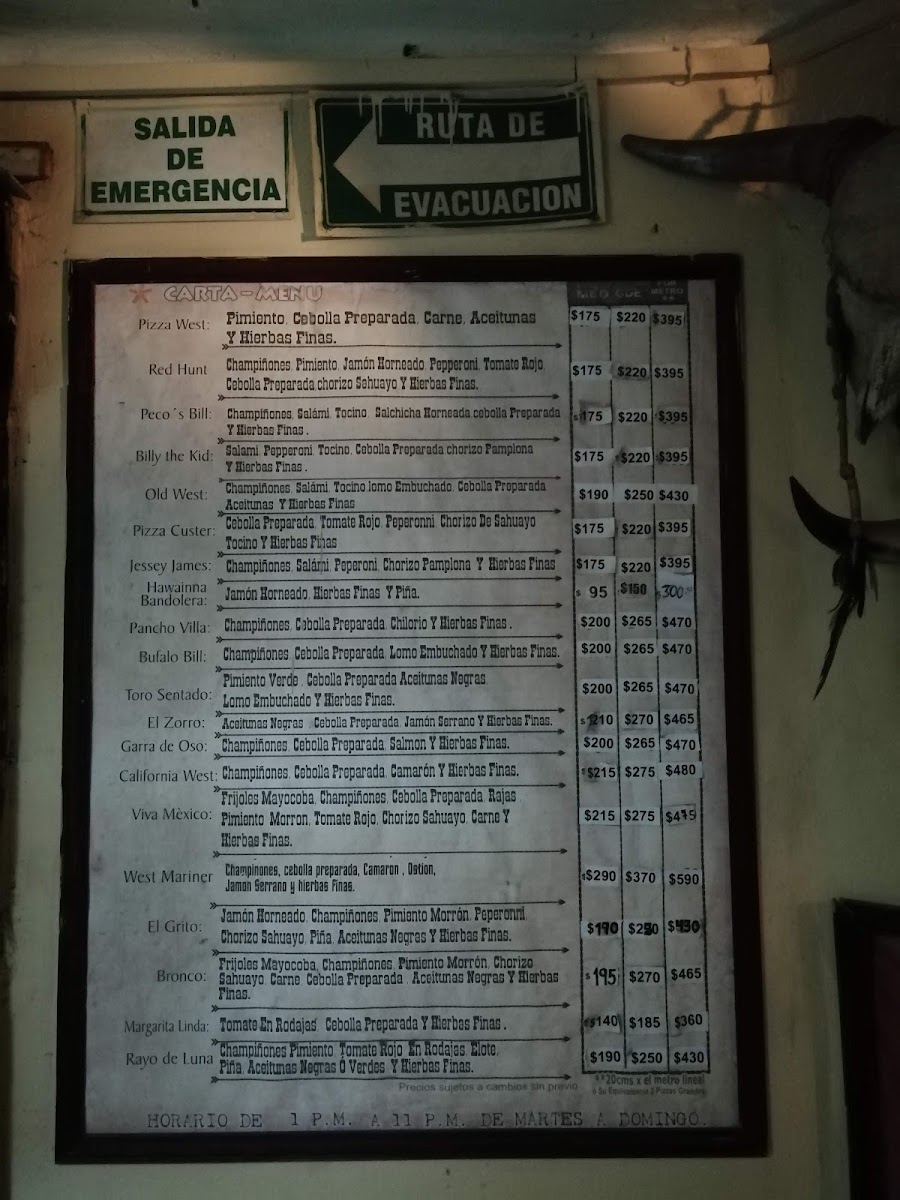 SALIDA
DE
EMERGENCIA
RUTA DE
EVACUACION
CARTA-MENU MED GDE POR METRO **
Pizza West: Pimiento, Cebolla Preparada, Carne, Aceitunas $175 $220 $395
Y Hierbas Finas.
Red Hunt Champiñones, Pimiento, Jamón Horneado, Pepperoni, Tomate Rojo, $175 $220 $395
Cebolla Preparada,chorizo Sahuayo Y Hierbas Finas.
Peco´s Bill: Champiñones, Salámi, Tocino, Salchicha Horneada cebolla Preparada $175 $220 $395
Y Hierbas Finas .
Billy the Kid: Salami, Pepperoni, Tocino, Cebolla Preparada chorizo Pamplona $175 $220 $395
Y Hierbas Finas .
Old West: Champiñones, Salámi, Tocino lomo Embuchado, Cebolla Preparada $190 $250 $430
Aceitunas Y Hierbas Finas
Pizza Custer: Cebolla Preparada, Tomate Rojo, Peperonni, Chorizo De Sahuayo $175 $220 $395
Tocino Y Hierbas Finas
Jessey James: Champiñones, Salámi, Peperoni, Chorizo Pamplona Y Hierbas Finas $175 $220 $395
Hawainna
Bandolera: Jamón Horneado, Hierbas Finas Y Piña. $ 95 $150 $300
Pancho Villa: Champiñones, Cebolla Preparada, Chilorio Y Hierbas Finas . $200 $265 $470
Bufalo Bill: Champiñones, Cebolla Preparada, Lomo Embuchado Y Hierbas Finas. $200 $265 $470
Toro Sentado: Pimiento Verde , Cebolla Preparada Aceitunas Negras, $200 $265 $470
Lomo Embuchado Y Hierbas Finas.
El Zorro: Aceitunas Negras , Cebolla Preparada, Jamón Serrano Y Hierbas Finas. $210 $270 $465
Garra de Oso: Champiñones, Cebolla Preparada, Salmon Y Hierbas Finas. $200 $265 $470
California West: Champiñones, Cebolla Preparada, Camarón Y Hierbas Finas. $215 $275 $480
Viva Mèxico: Frijoles Mayocoba, Champiñones, Cebolla Preparada, Rajas , $215 $275
Pimiento Morron, Tomate Rojo, Chorizo Sahuayo, Carne Y
Hierbas Finas.
West Mariner Champiñones, cebolla preparada, Camaron , Ostion, $290 $370 $590
Jamon Serrano y hierbas Finas.
El Grito: Jamón Horneado, Champiñones, Pimiento Morrón, Peperonni, $190 $250 $430
Chorizo Sahuayo, Piña, Aceitunas Negras Y Hierbas Finas.
Bronco: Frijoles Mayocoba, Champiñones, Pimiento Morrón, Chorizo $195 $270 $465
Sahuayo, Carne, Cebolla Preparada , Aceitunas Negras Y Hierbas
Finas.
Margarita Linda: Tomate En Rodajas, Cebolla Preparada Y Hierbas Finas . $140 $185 $360
Rayo de Luna Champiñones Pimiento, Tomate Rojo En Rodajas, Elote, $190 $250 $430
Piña, Aceitunas Negras Ó Verdes Y Hierbas Finas.
Precios sujetos a cambios sin previo **20cms x el metro lineal
o Su Equivalencia 2 Pizzas Grandes
HORARIO DE 1 P.M. A 11 P.M. DE MARTES A DOMINGO.